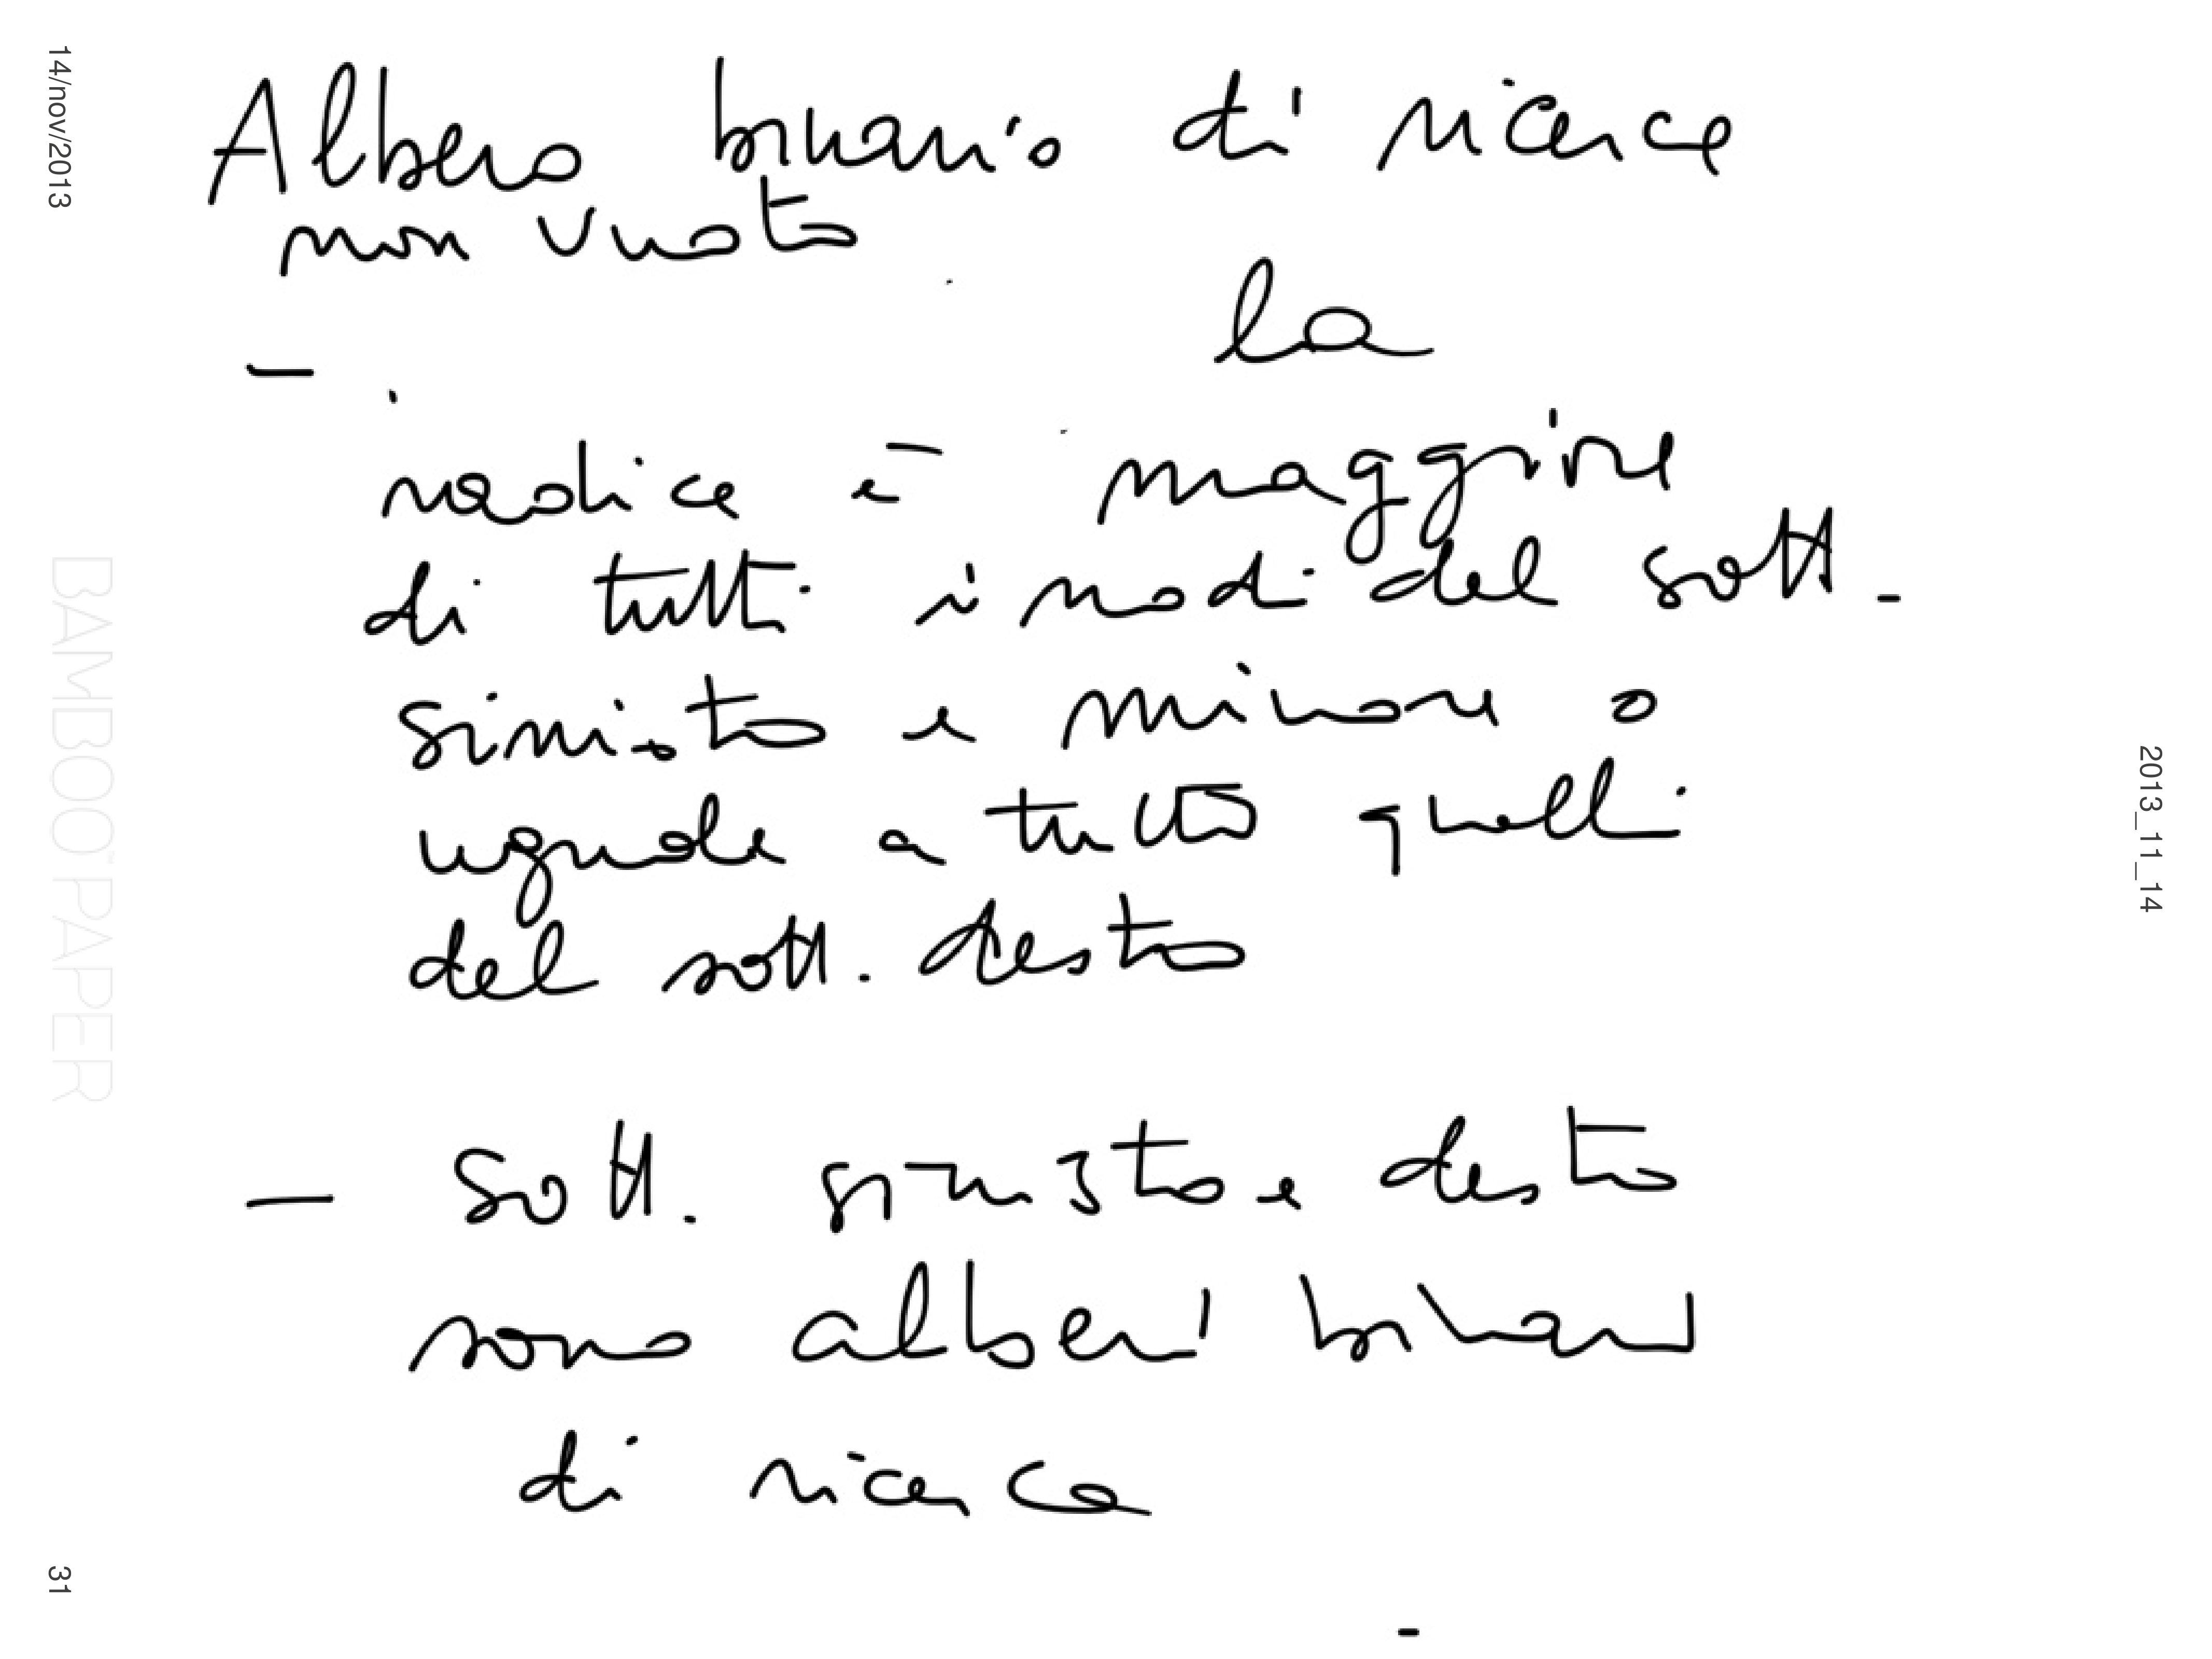 14/nov/2013
Albero binario di ricerca
non vuoto
la
-
radice è maggiore
di tutti i nodi del sott.
sinisto e minore o
uguale a tutti quelli
del sott. desto
- Sott. sinisto e desto
sono alberi binari
di ricerca
-
BAMBOO PAPER
2013_11_14
31